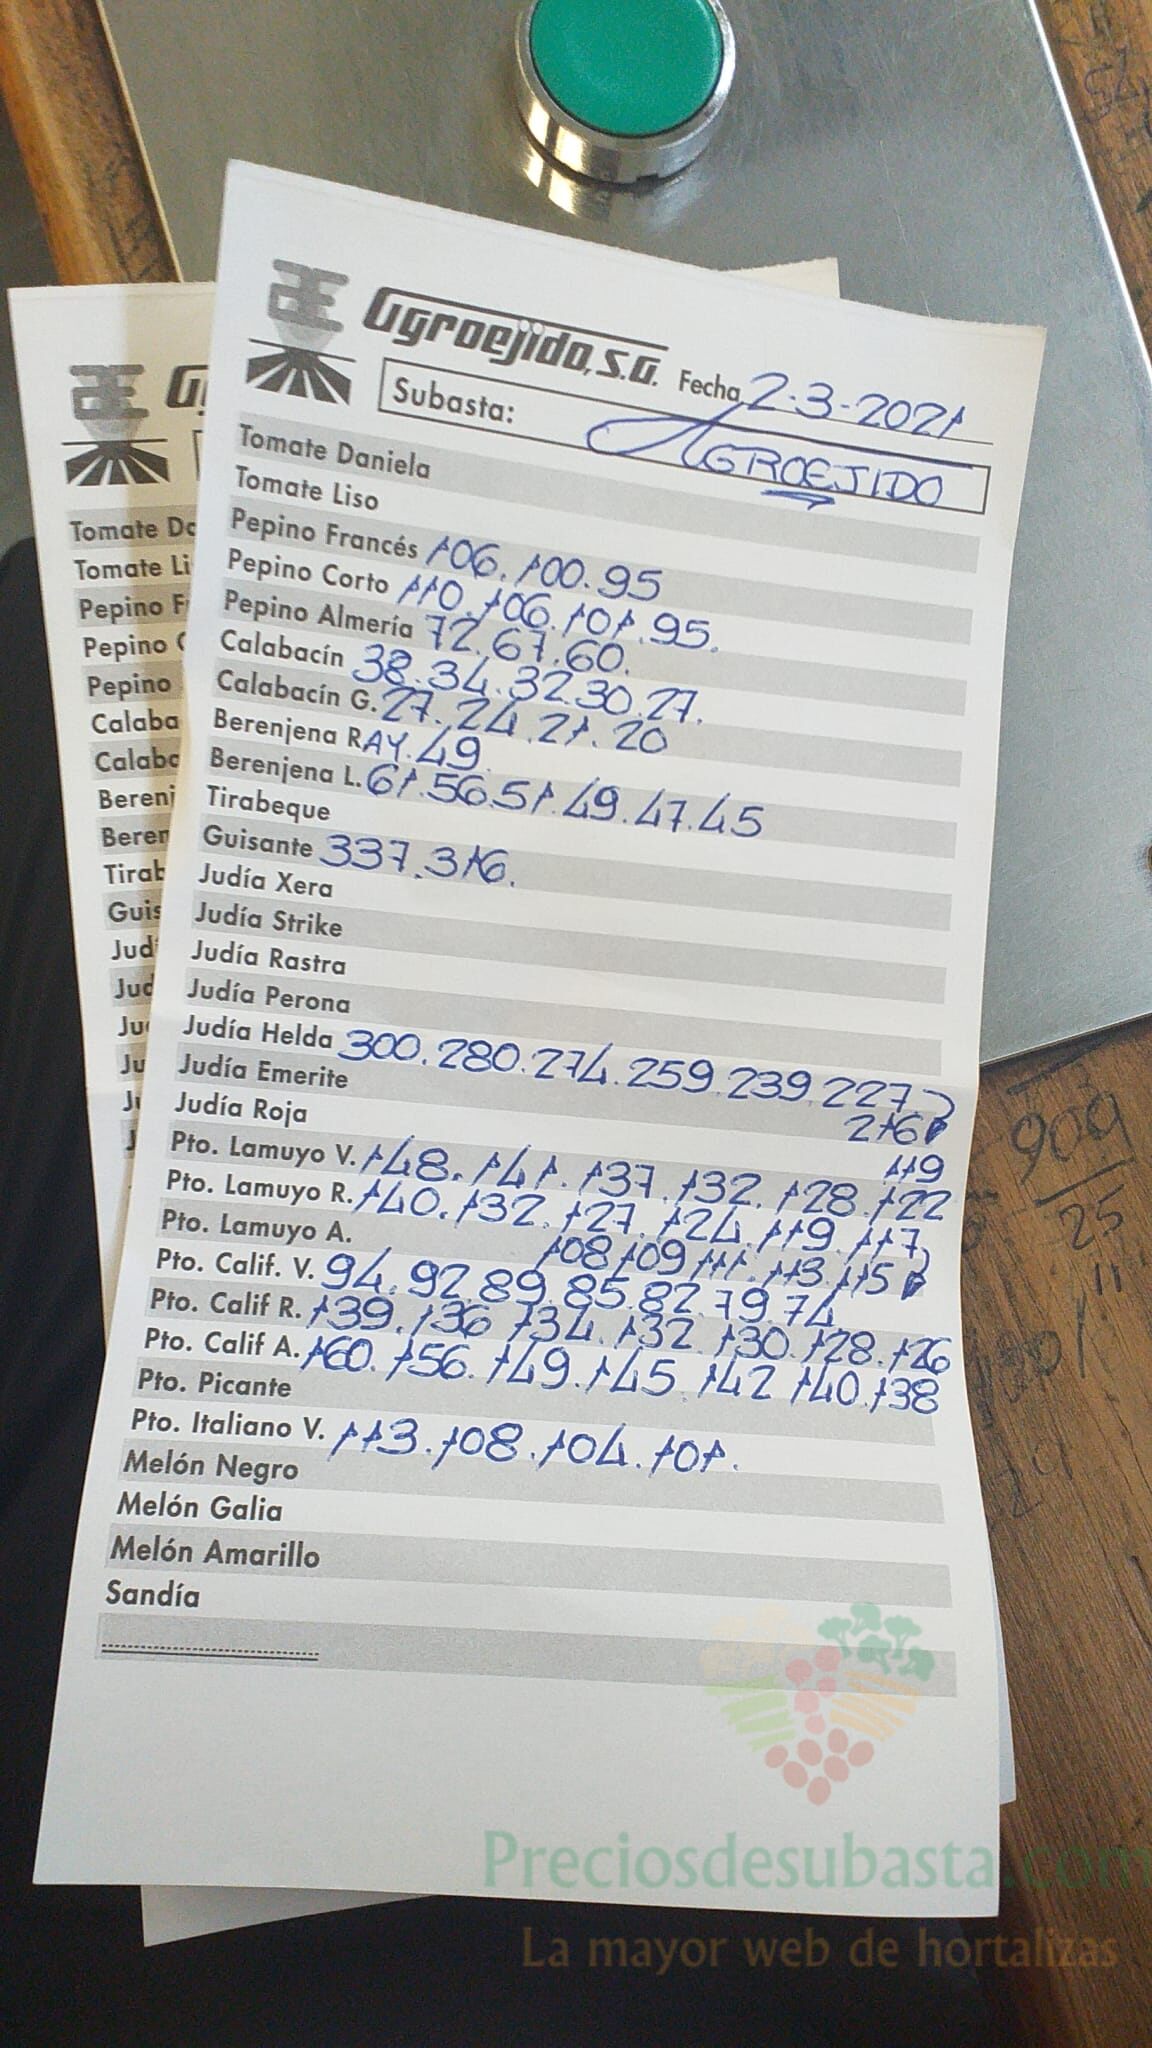 Agroejido, S.A. Fecha 2-3-2021
Subasta: AGROEJIDO
Tomate Daniela
Tomate Liso
Pepino Francés 106. 100. 95
Pepino Corto 110. 106. 101. 95.
Pepino Almería 72. 67. 60.
Calabacín 38. 34. 32. 30. 27.
Calabacín G. 27. 24. 21. 20
Berenjena RAY. 49
Berenjena L. 61. 56. 51. 49. 47. 45
Tirabeque
Guisante 337. 316.
Judía Xera
Judía Strike
Judía Rastra
Judía Perona
Judía Helda 300. 280. 274. 259. 239. 227
216
Judía Emerite
Judía Roja
119
Pto. Lamuyo V. 148. 141. 137. 132. 128. 122
Pto. Lamuyo R. 140. 132. 127. 124. 119. 117
108 109 111. 113. 115
Pto. Lamuyo A.
Pto. Calif. V. 94. 92. 89. 85. 82. 79. 74
Pto. Calif R. 139. 136 134. 132. 130. 128. 126
Pto. Calif A. 160. 156. 149. 145. 142 140. 138
Pto. Picante
Pto. Italiano V. 113. 108. 104. 101.
Melón Negro
Melón Galia
Melón Amarillo
Sandía
Tomate
Tomate Li
Pepino
Pepino
Pepino
Calaba
Calaba
Berenj
Beren
Tirab
Guis
Jud
Jud
Ju
Ju
909
25
Preciosdesubasta.com
La mayor web de hortalizas